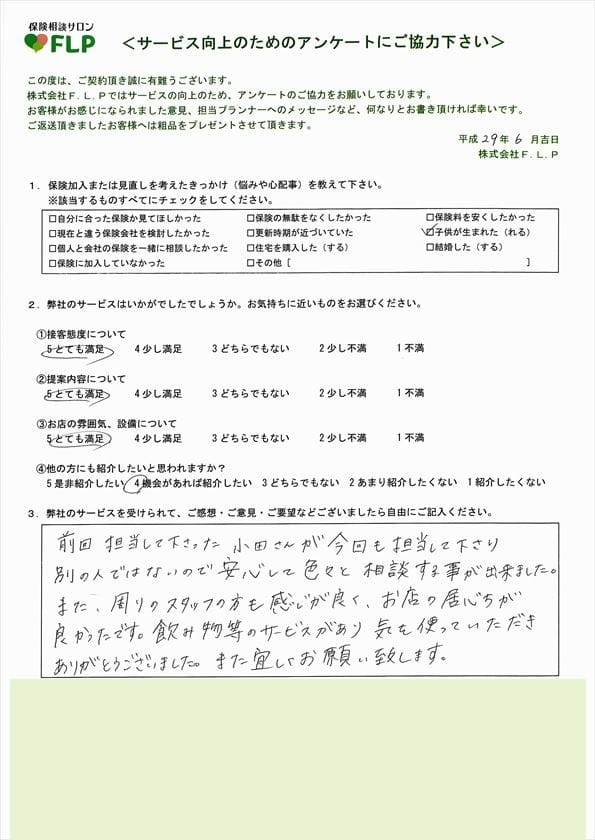 保険相談サロン
FLP
＜サービス向上のためのアンケートにご協力下さい＞
この度は、ご契約頂き誠に有難うございます。
株式会社Ｆ.Ｌ.Ｐではサービスの向上のため、アンケートのご協力をお願いしております。
お客様がお感じになられました意見、担当プランナーへのメッセージなど、何なりとお書き頂ければ幸いです。
ご返送頂きましたお客様へは粗品をプレゼントさせて頂きます。
平成 29年 6 月吉日
株式会社Ｆ.Ｌ.Ｐ
１．保険加入または見直しを考えたきっかけ（悩みや心配事）を教えて下さい。
※該当するものすべてにチェックをしてください。
□自分に合った保険か見てほしかった □保険の無駄をなくしたかった □保険料を安くしたかった
□現在と違う保険会社を検討したかった □更新時期が近づいていた □子供が生まれた（れる）
□個人と会社の保険を一緒に相談したかった □住宅を購入した（する） □結婚した（する）
□保険に加入していなかった □その他［ ］
２．弊社のサービスはいかがでしたでしょうか。お気持ちに近いものをお選びください。
①接客態度について
５とても満足 ４少し満足 ３どちらでもない ２少し不満 １不満
②提案内容について
５とても満足 ４少し満足 ３どちらでもない ２少し不満 １不満
③お店の雰囲気、設備について
５とても満足 ４少し満足 ３どちらでもない ２少し不満 １不満
④他の方にも紹介したいと思われますか？
５是非紹介したい ４機会があれば紹介したい ３どちらでもない ２あまり紹介したくない １紹介したくない
３．弊社のサービスを受けられて、ご感想・ご意見・ご要望などございましたら自由にご記入ください。
前回 担当して下さった 小田さんが今回も担当して下さり
別の人ではないので安心して色々と相談する事が出来ました。
また、周りのスタッフの方も感じが良く、お店の居心ちが
良かったです。飲み物等のサービスがあり 気を使っていただき
ありがとうございました。また宜しくお願い致します。